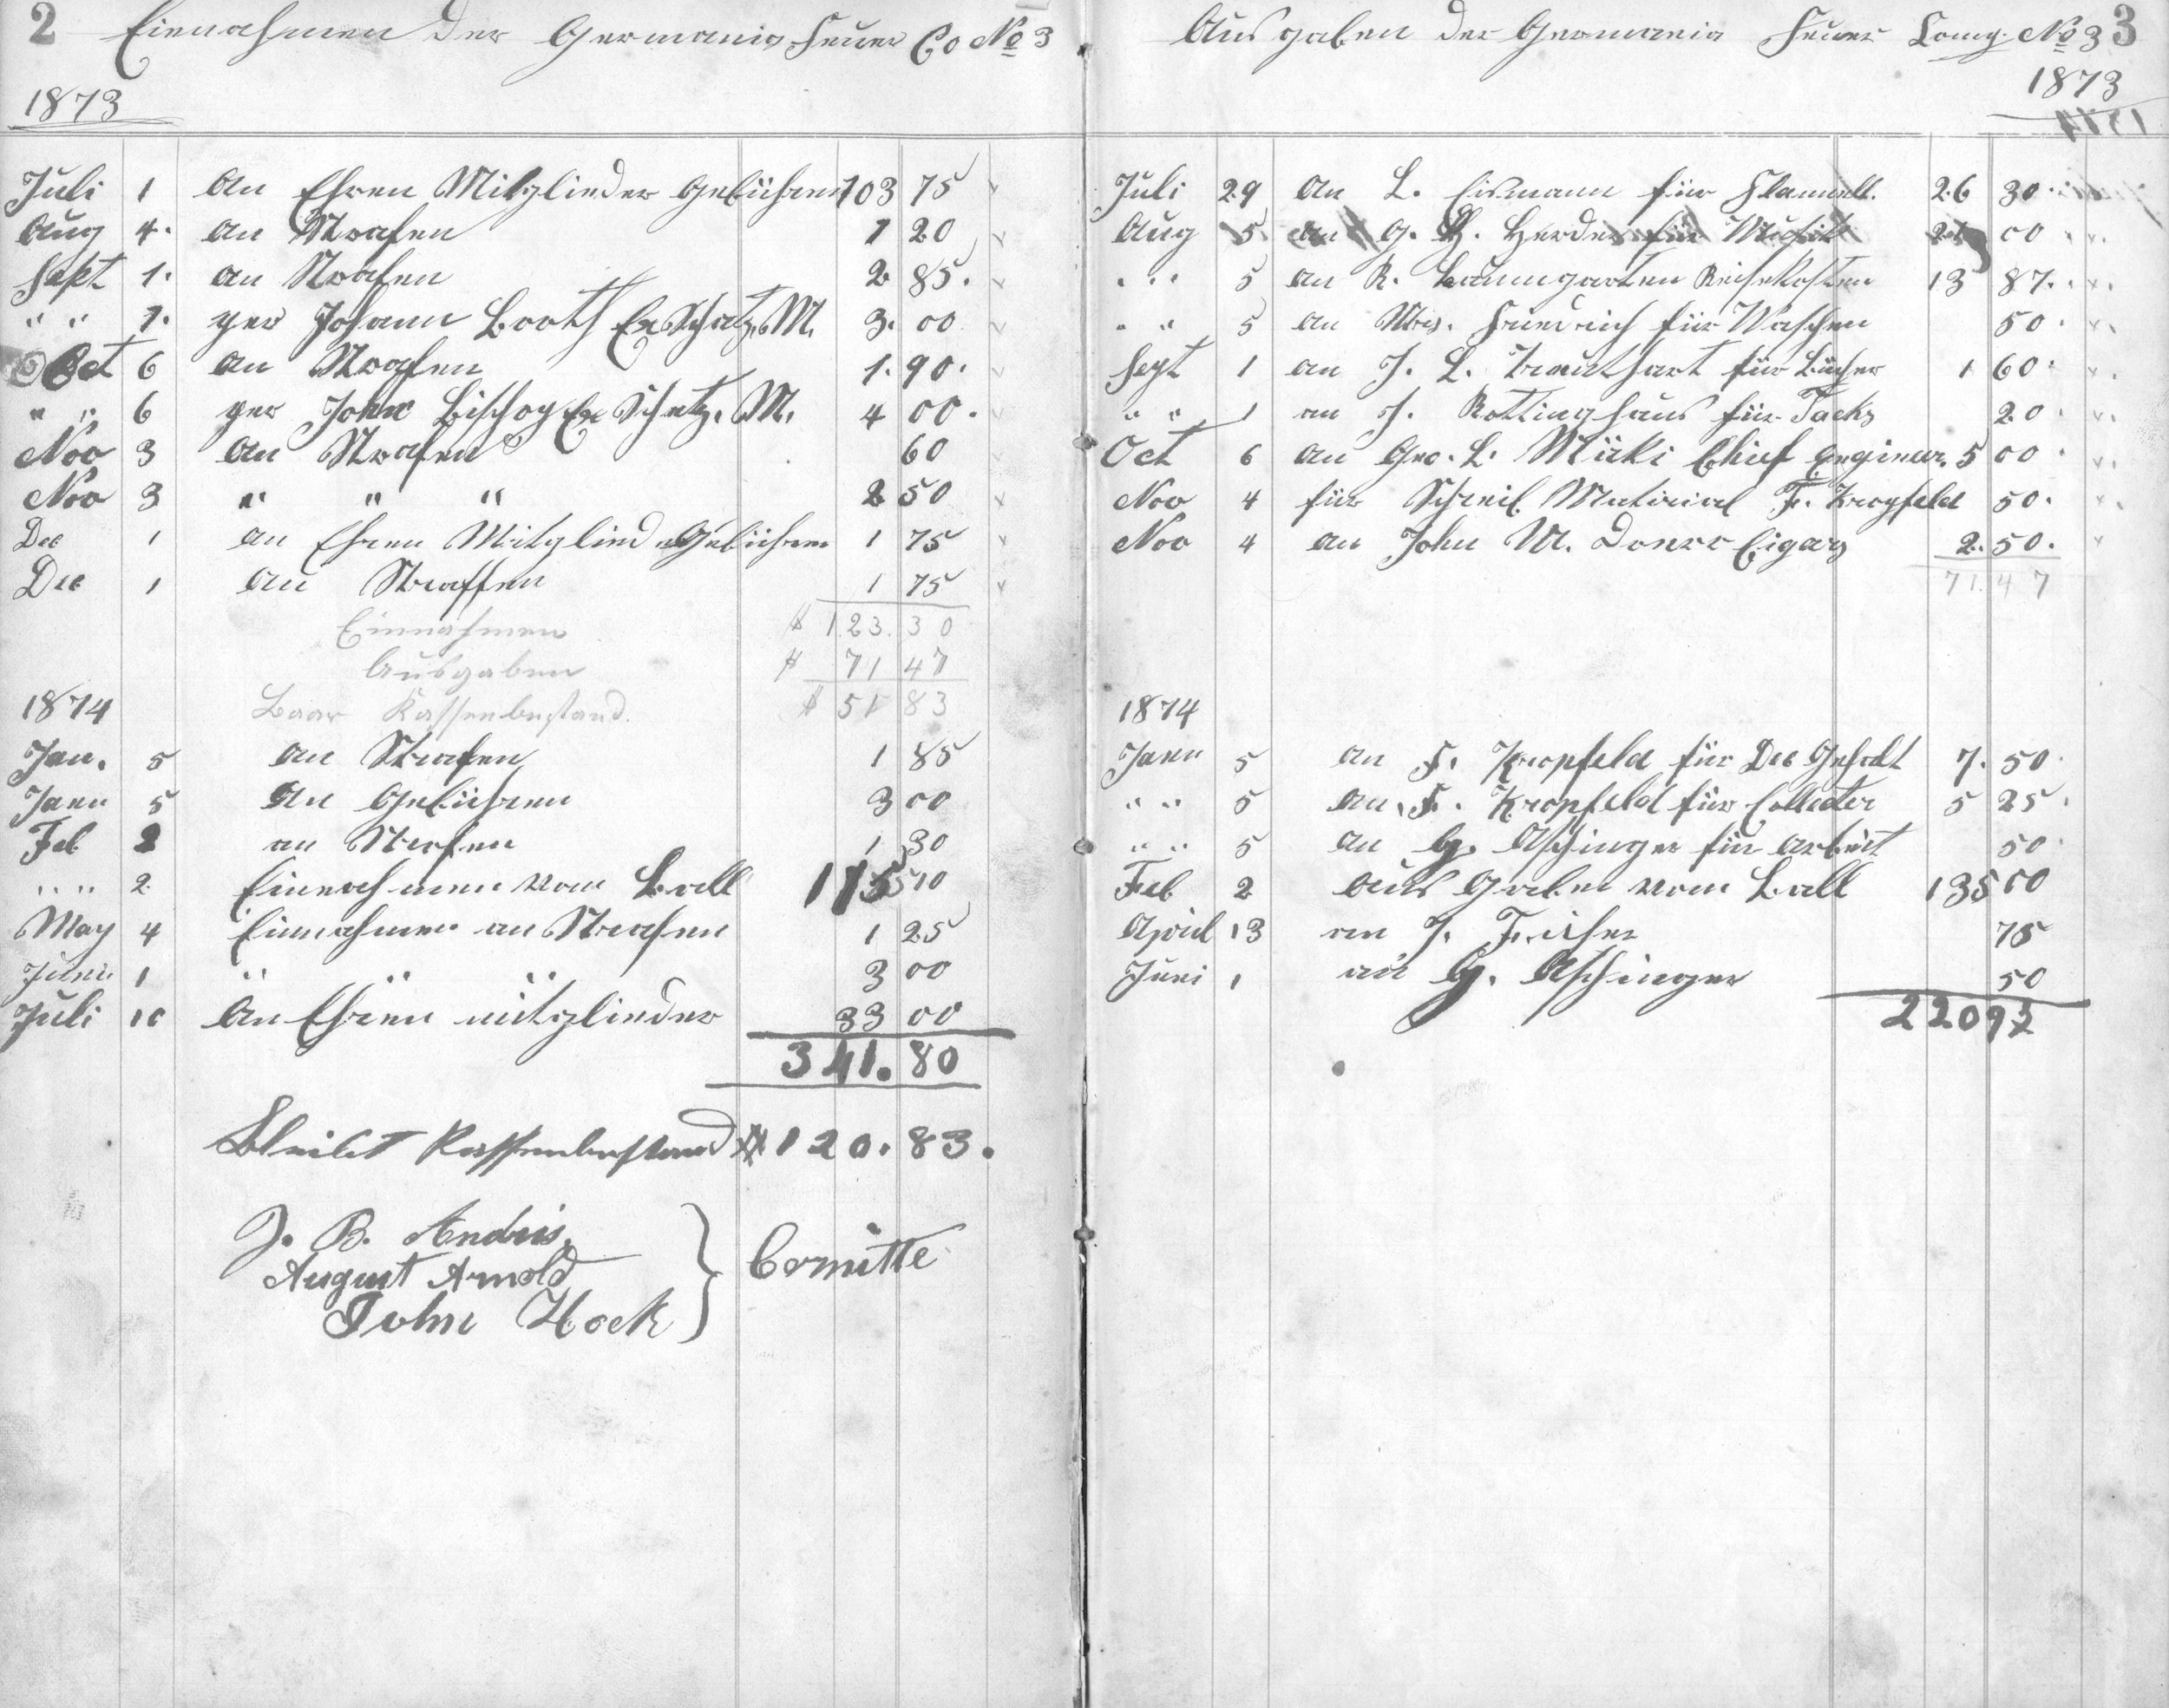 2 Einnahmen der Germania Feuer Co No 3
1873
Juli 1 An Ehren Mitglieder Gebühren 103 75
Aug 4. an Strafen 1 20
Sept 1. an Strafen 2 85.
" " 1. per Johann Booth Ex Schatz. M. 3. 00
Oct 6 an Strafen 1. 90.
" " 6 per John Bischop Ex Schatz. M. 4 00.
Nov 3 an Strafen 60
Nov 3 " " " 2 50
Dec 1 an Ehren Mitglieder Gebühren 1 75
Dec 1 an Straffen 1 75
Einnahmen $ 123. 30
Ausgaben $ 71 47
1874 Baar Kassenbestand. $ 51 83
Jan. 5 an Strafen 1 85
Janu 5 An Gebühren 3 00
Feb 2 an Strafen 1 30
" " 2 Einnahmen vom Ball 175 10
May 4 Einnahmen an Strafen 1 25
Juni 1 " " " 3 00
Juli 10 An Ehren mitglieder 33 00
341. 80
Bleibt Kassenbestand $ 120. 83.
J. B. Andris
August Arnold
John Hock
Comitte
Ausgaben der Germania Feuer Comp. No 3 3
1873
Juli 29 an L. Eismann für Flannell. 26 30.
Aug 5 an G. H. Herder für Musik 21 00
" " 5 an R. Baumgarten Reisekosten 13 87.
" " 5 an Mrs. Friedrich für Waschen 50.
Sept 1 an J. L. für Bücher 1 60.
" " 1 an J. Rottinghaus für Tacks 20.
Oct 6 an Geo. L. Mücki Chief Engineur. 5 00.
Nov 4 für Schreib Material F. Kropfeld 50.
Nov 4 an John M. Cigars 2. 50.
71. 47
1874
Janu 5 an F. Kropfeld für Dec Gehalt 7. 50.
" " 5 an F. Kropfeld für Collecter 5 25.
" " 5 an G. Aschinger für arbeit 50.
Feb 2 Aus Gaben vom Ball 135 00
April 13 an J. Fischer 75
Juni 1 an G. Aschinger 50
220 97